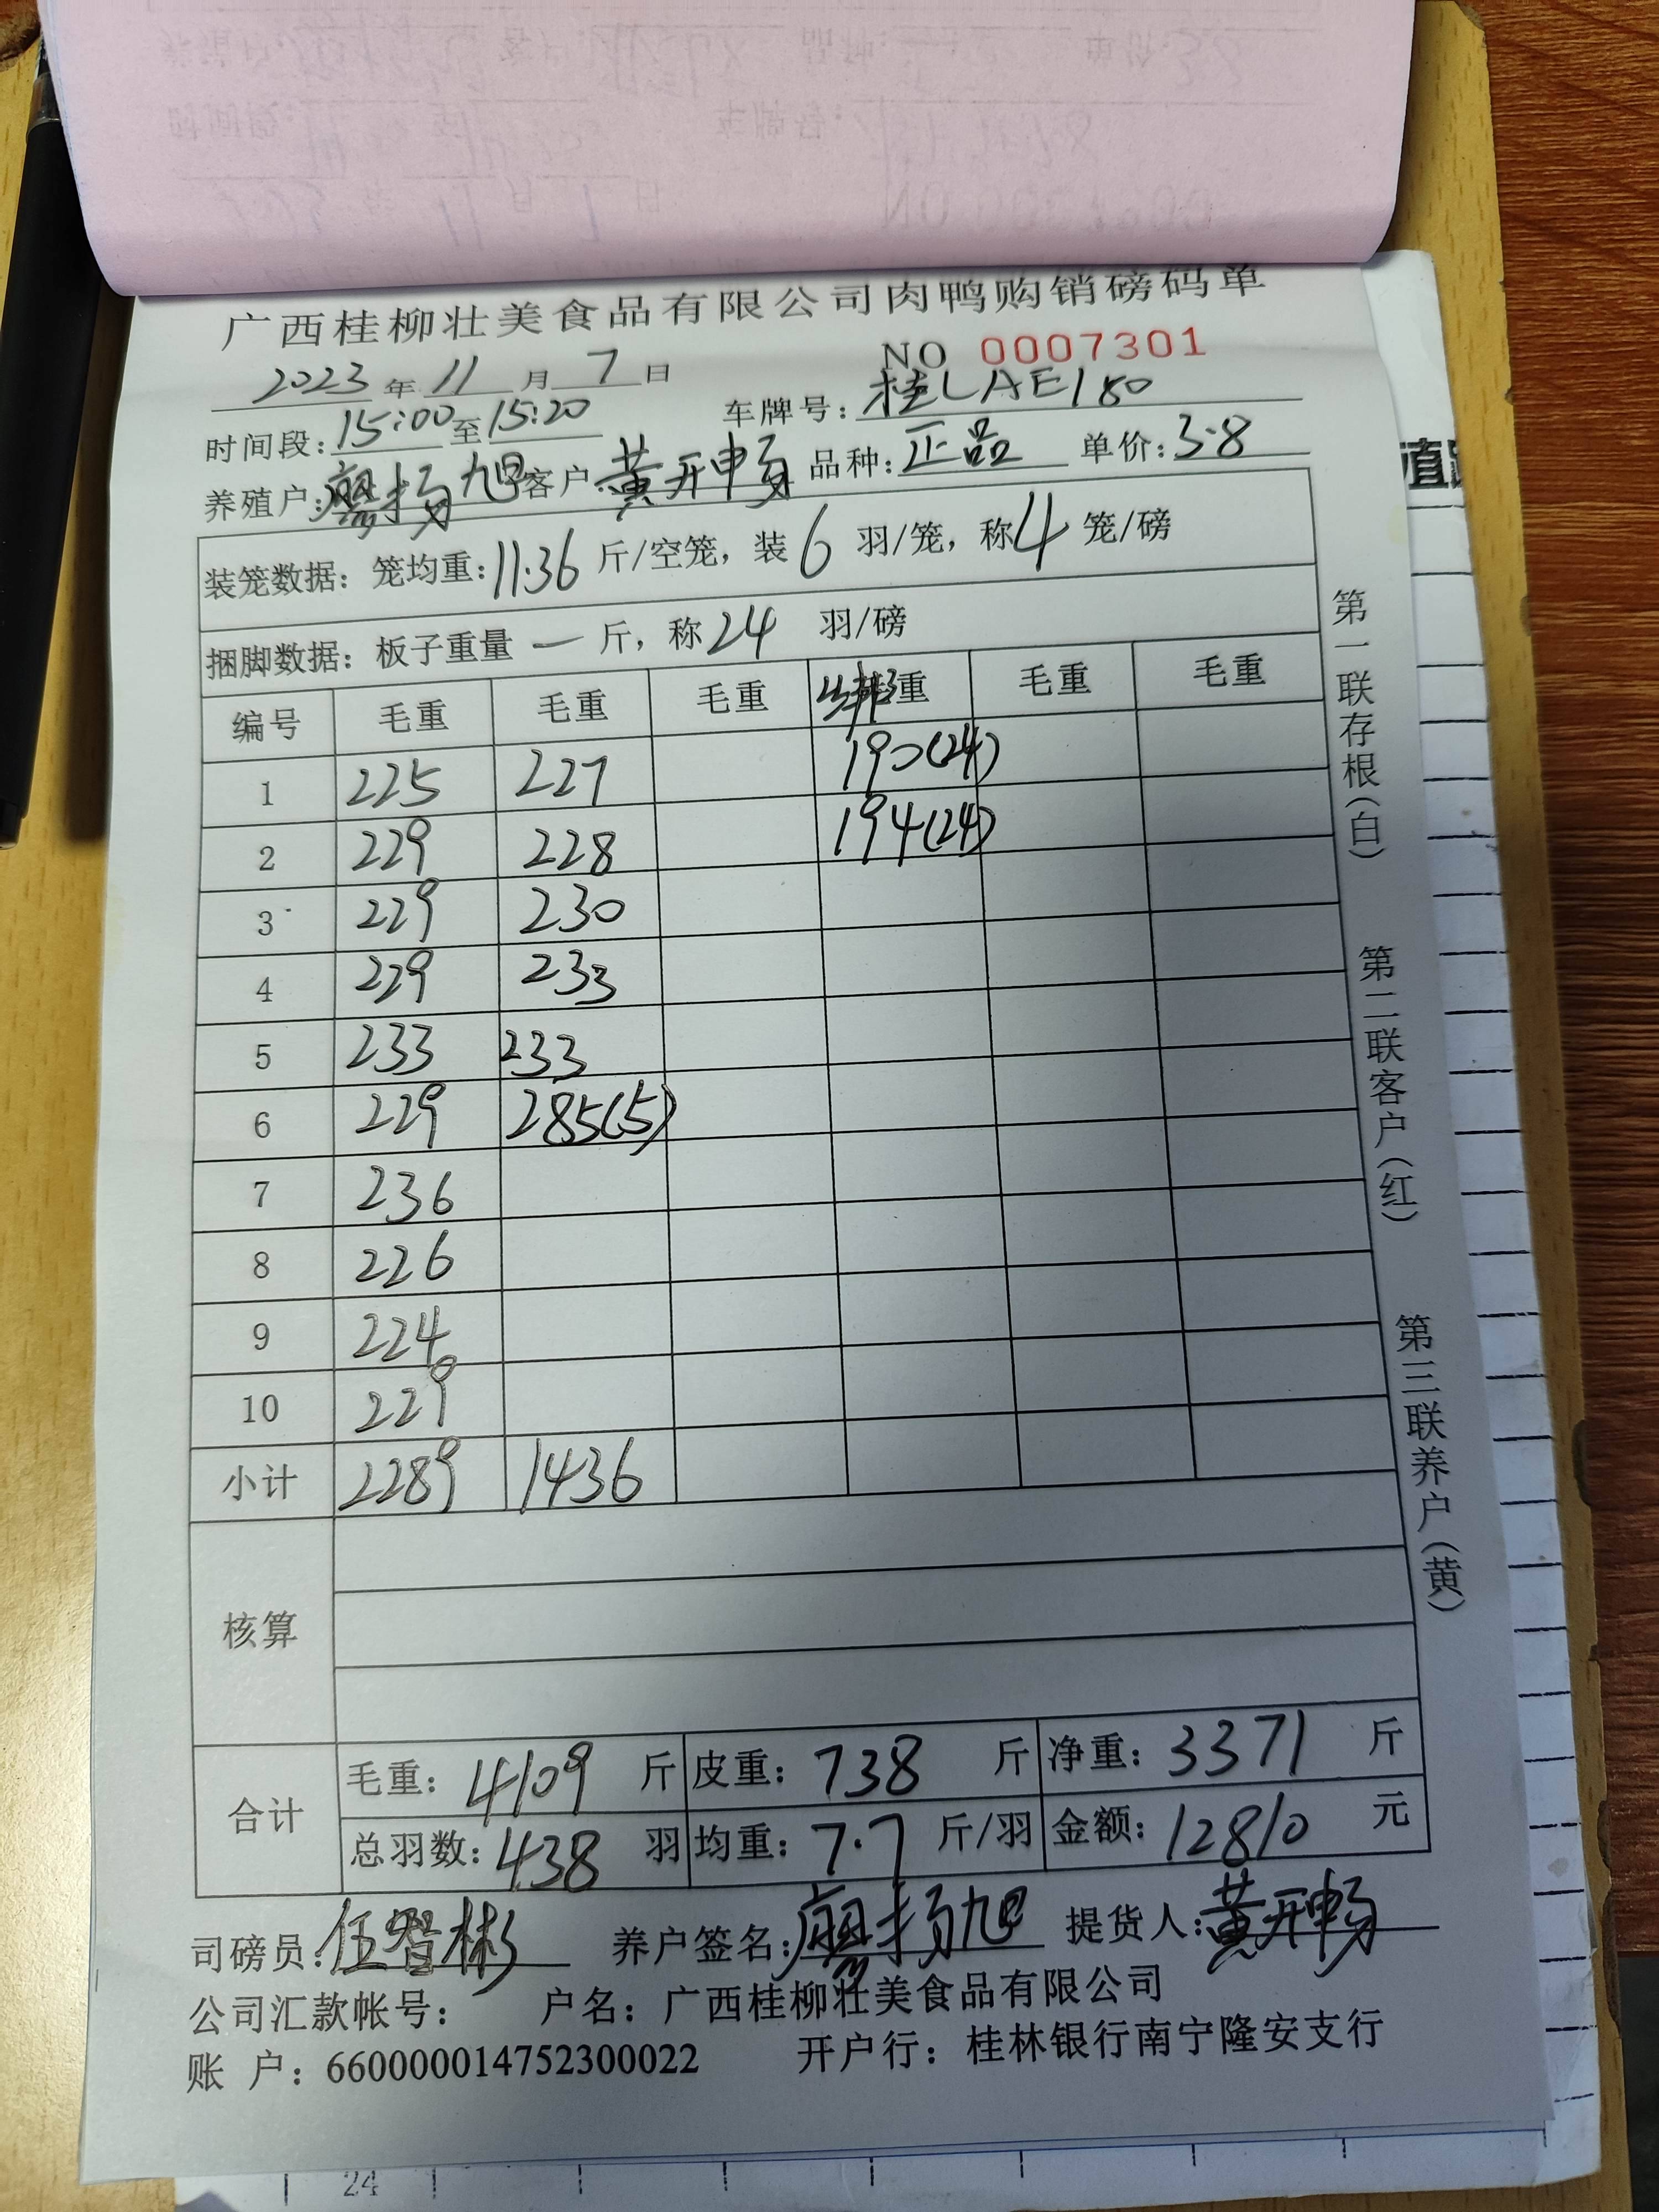 广西桂柳壮美食品有限公司肉鸭购销磅码单
NO 0007301
2023年11月7日
时间段:15:00至15:20 车牌号:桂LAE180
养殖户:廖扬旭 客户:黄开畅 品种:正品 单价:3.8
装笼数据:笼均重:11.36斤/空笼,装6羽/笼,称4笼/磅
捆脚数据:板子重量 一 斤,称24羽/磅
编号 毛重 毛重 毛重 重 毛重 毛重
1 225 227 190(24)
2 229 228 194(24)
3 229 230
4 229 233
5 233 233
6 229 285(5)
7 236
8 226
9 224
10 229
小计 2289 1436
核算
合计 毛重:4109斤 皮重:738斤 净重:3371斤
总羽数:438羽 均重:7.7斤/羽 金额:12810元
司磅员:伍智彬 养户签名:廖扬旭 提货人:黄开畅
公司汇款帐号: 户名:广西桂柳壮美食品有限公司
账户:660000014752300022 开户行:桂林银行南宁隆安支行
第一联存根(白) 第二联客户(红) 第三联养户(黄)
殖
24